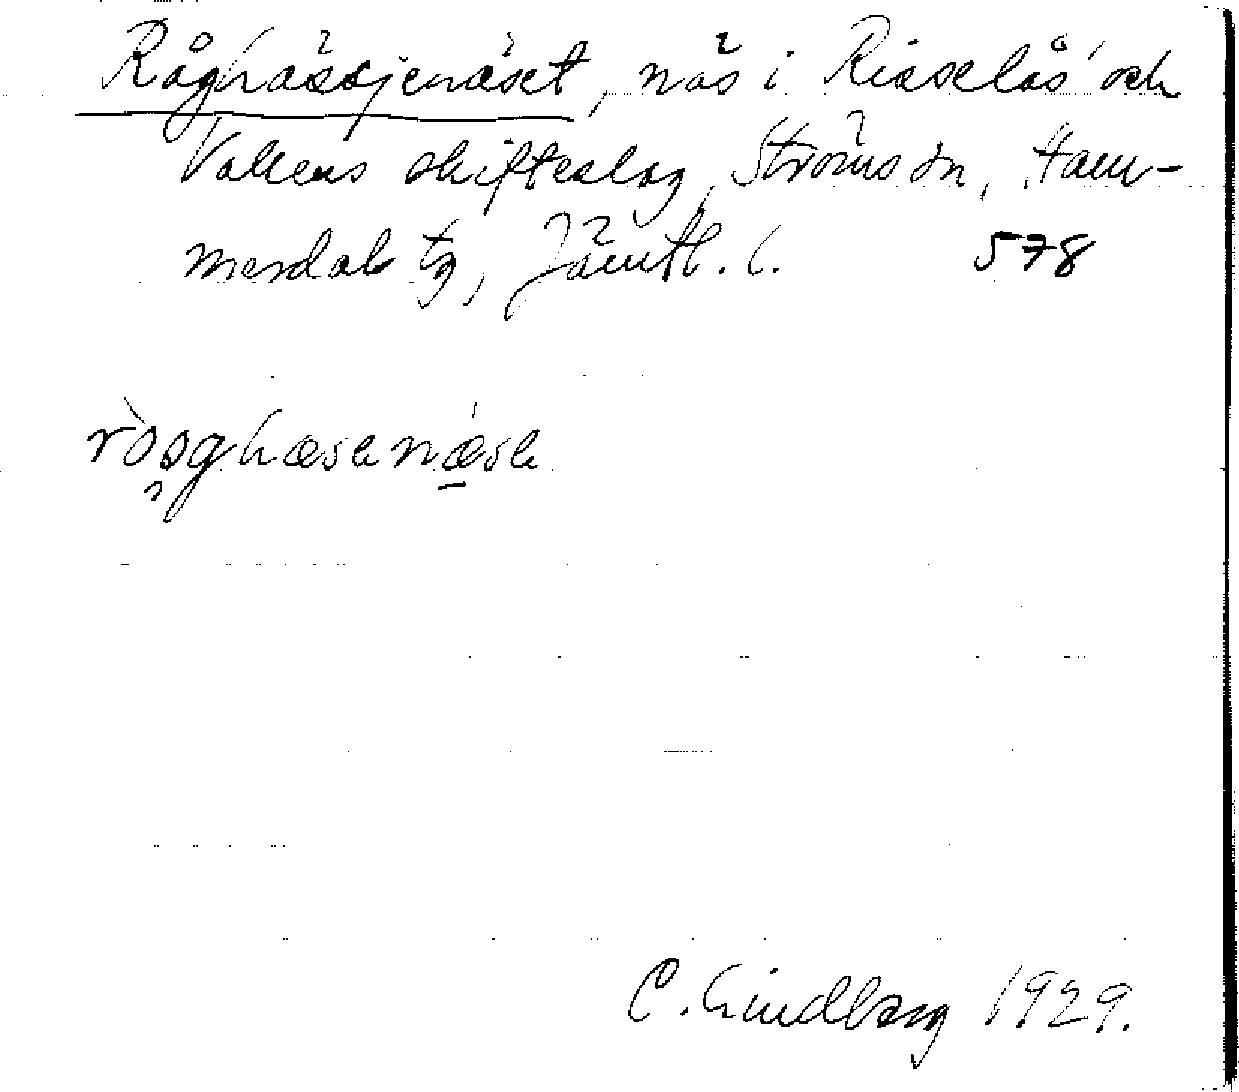 Råghässjenäset, näs i Risselås och
Vallens skifteslag, Ströms sn, Ham-
merdals tg, Jämtl. l. 578
ròoghæsenæse
C. Lindberg 1929.